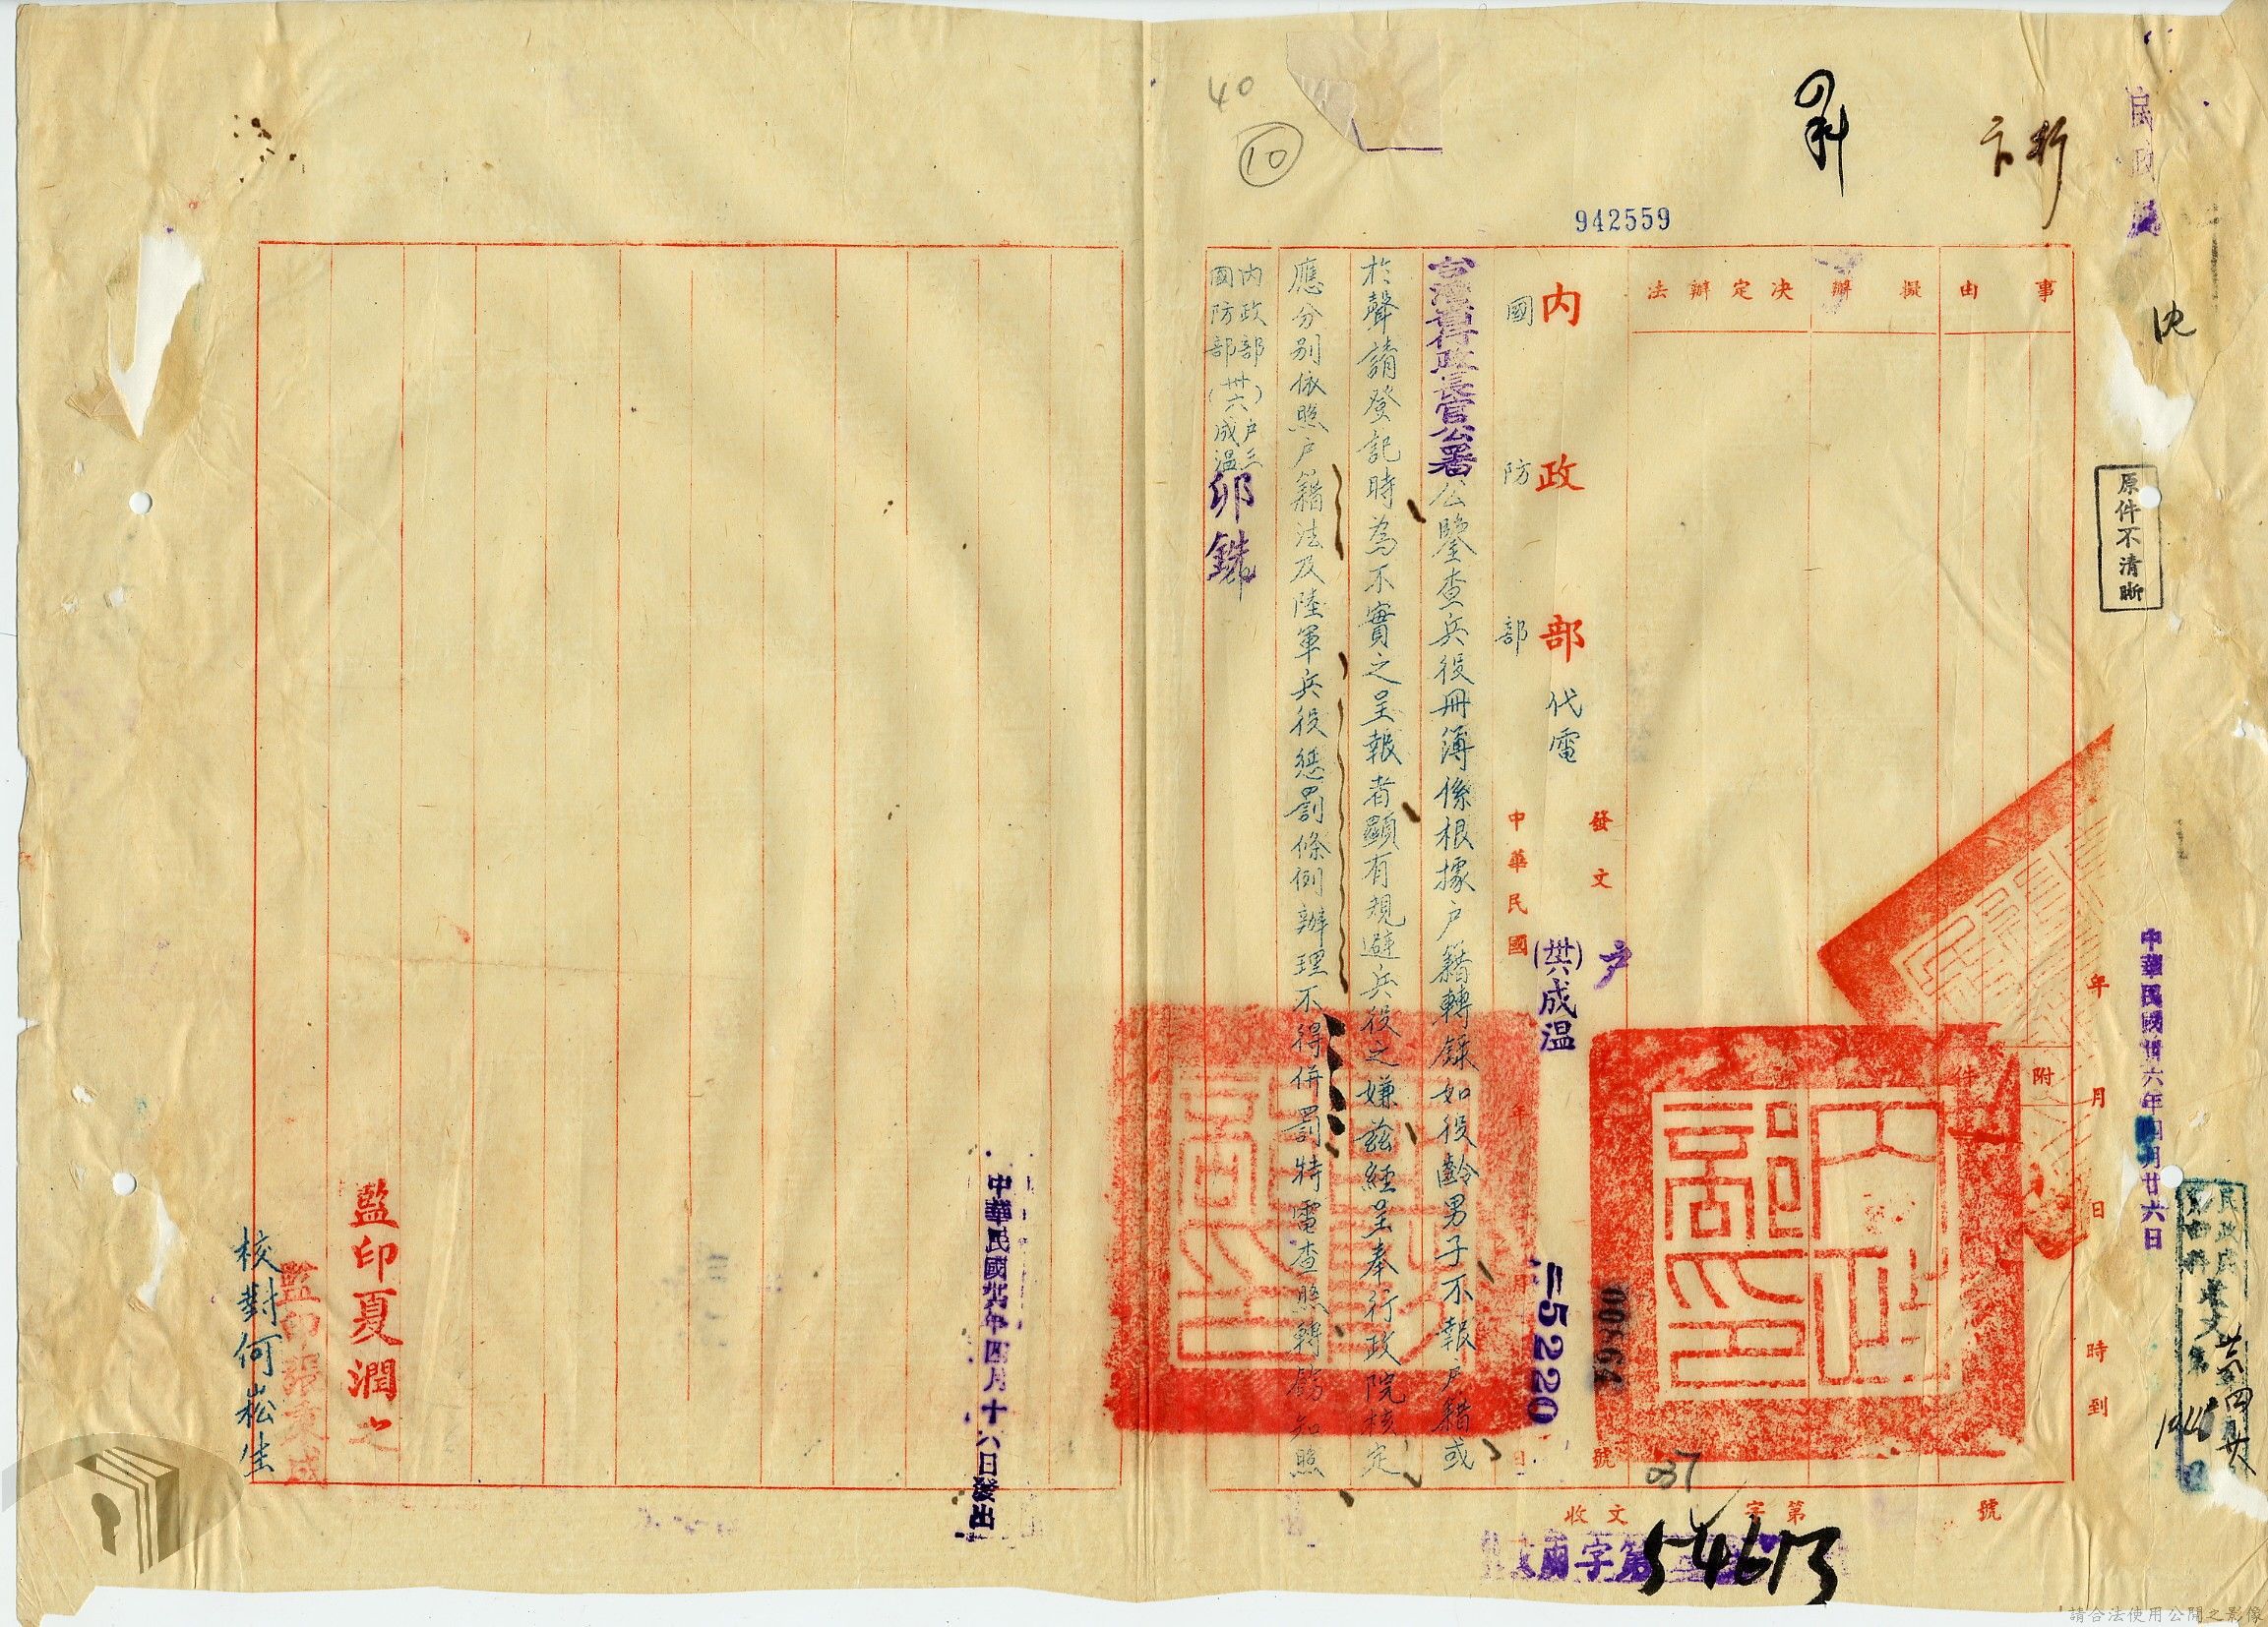 民政處
沈
原件不清晰
中華民國卅六年四月廿六日
年月日時到
事由
擬辦
決定辦法
附件
942559
40
10
發文
號
內政部代電
國防部
戶
(卅六)成温
5220
中華民國年月日
台灣省行政長官公署公鑒查兵役冊簿係根據户籍轉錄如役齡男子不報户籍或
於聲請登記時為不實之呈報者顯有規避兵役之嫌茲經呈奉行政院核定
應分別依照户籍法及陸軍兵役懲罰條例辦理不得併罰特電查照轉飭知照
內政部户三
國防部(卅六)成温
卯銑印
收文字第號
037
54613
中華民國卅六年四月十六日發出
監印夏潤之
校對何崧生
請合法使用公開之影像